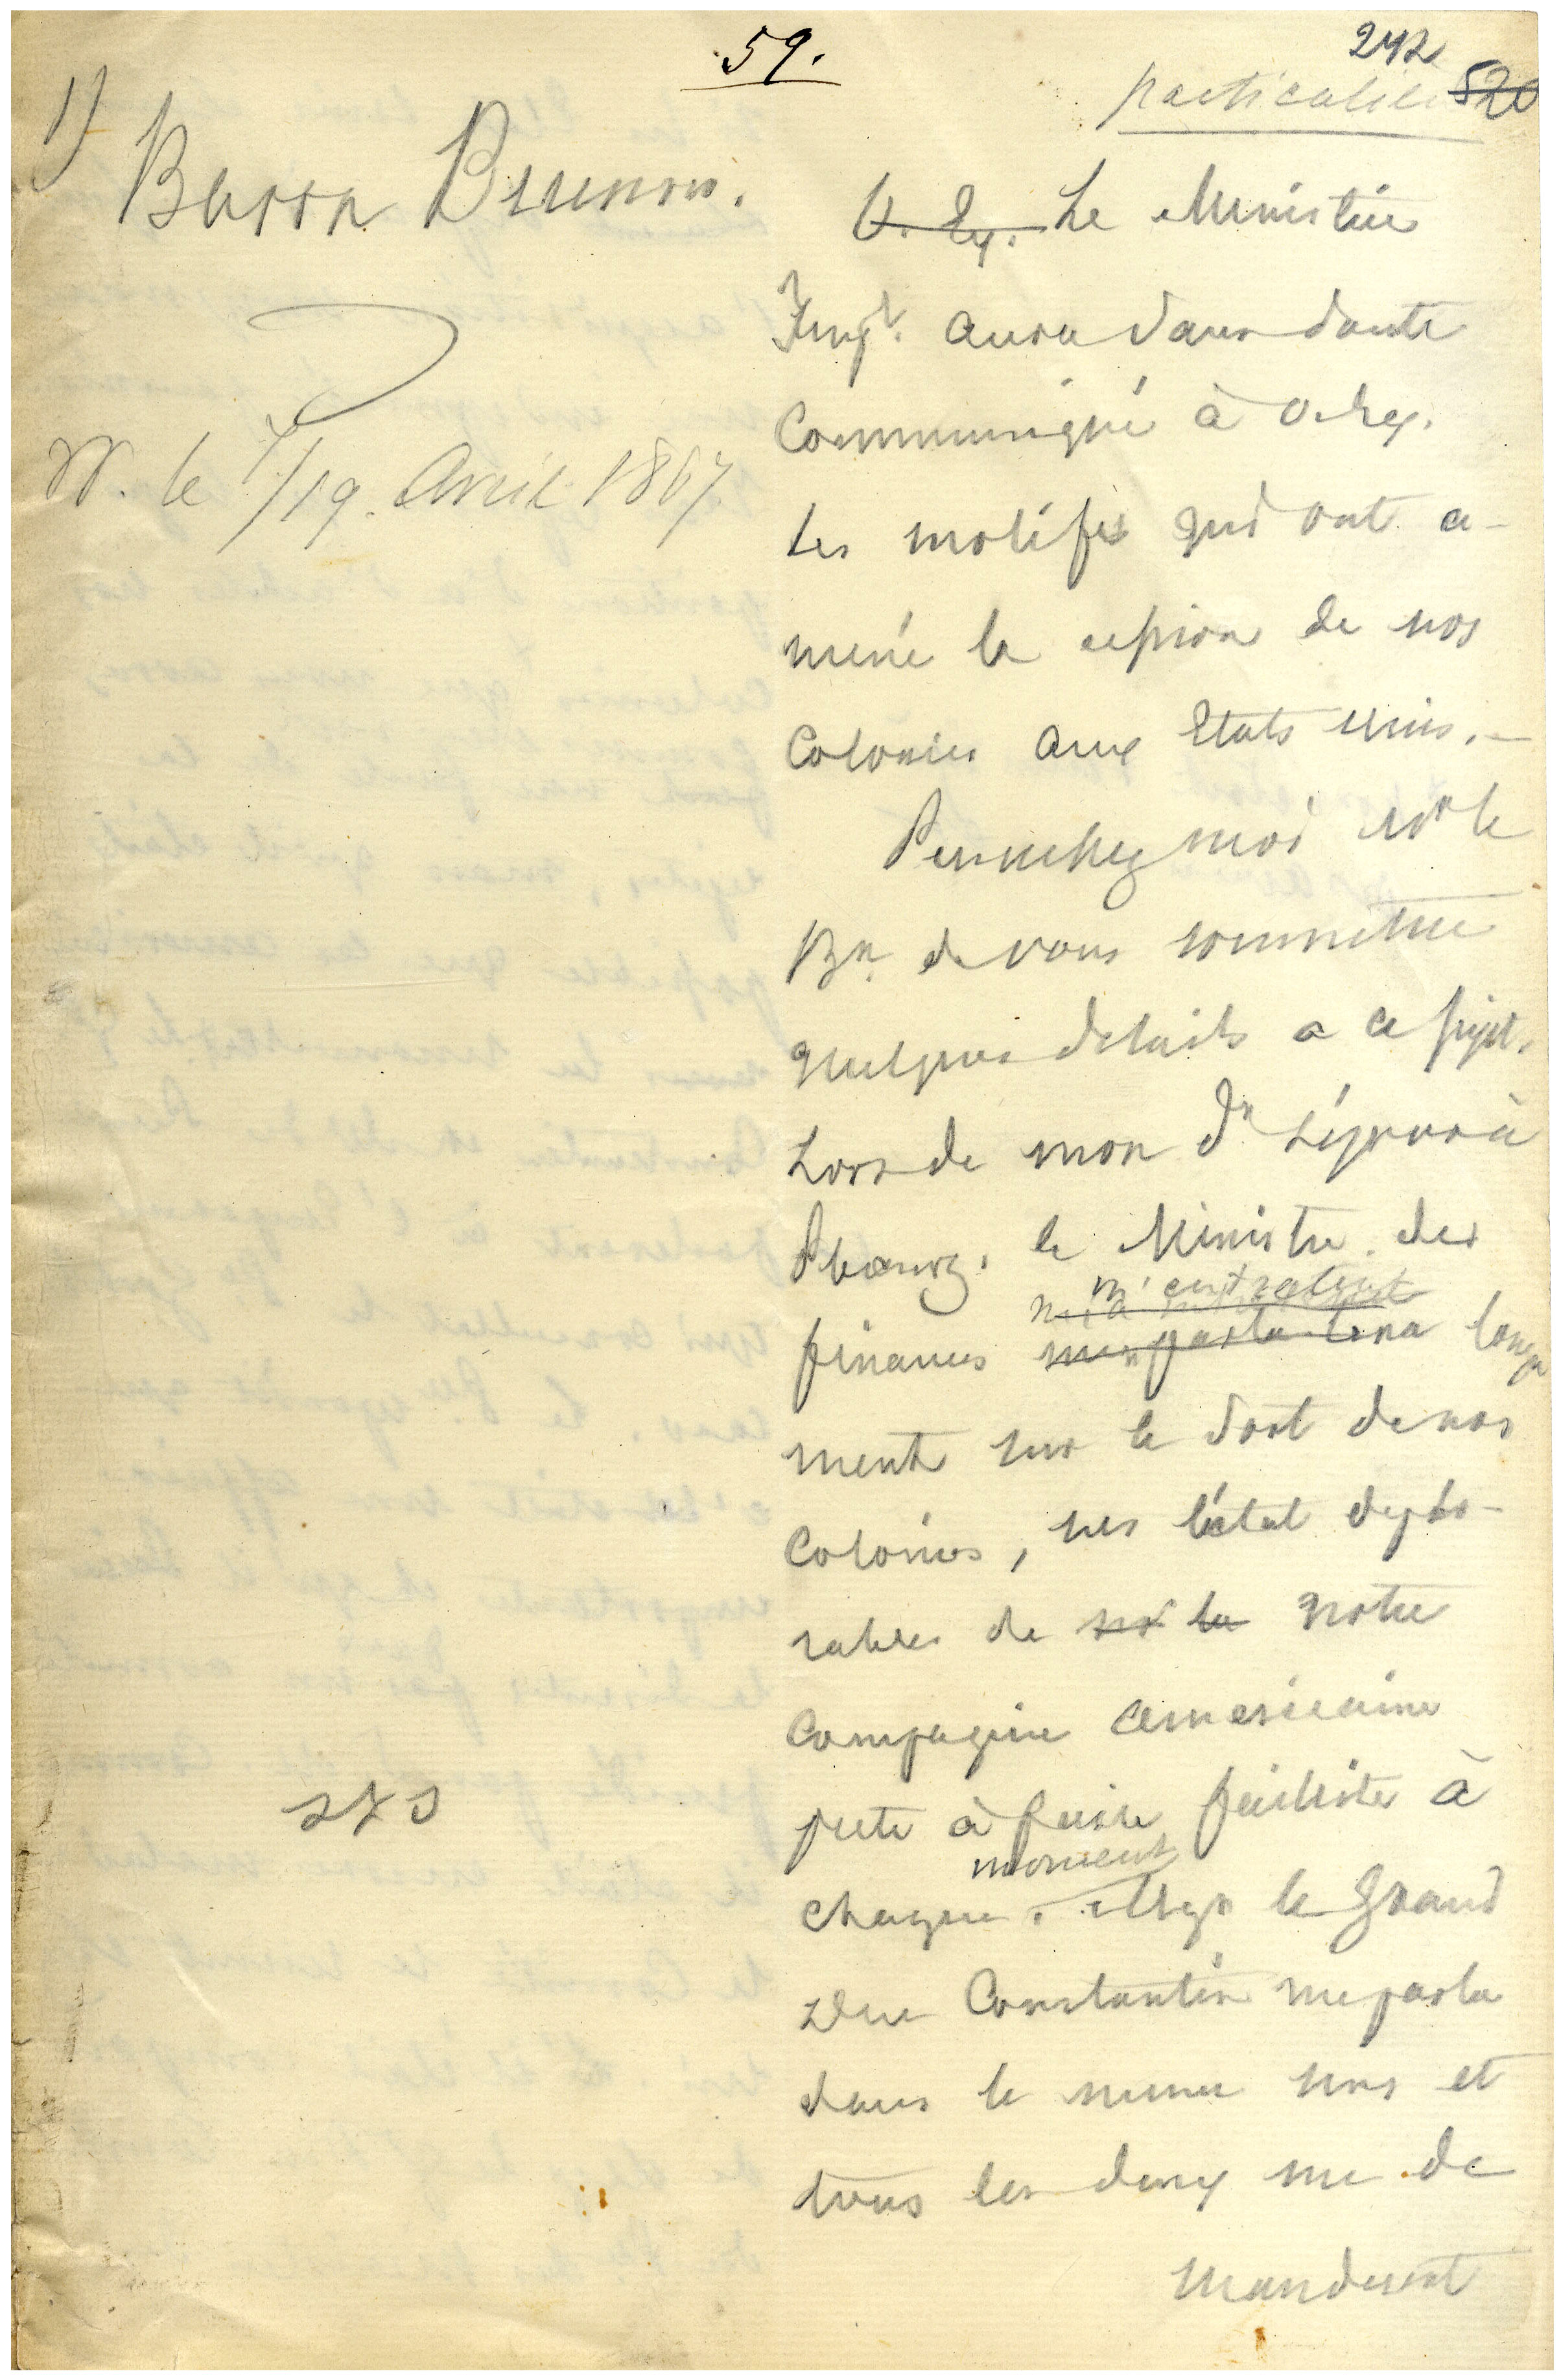 59.
242
particulière 520
1)
Baron Brunow.
W. le 7/19. Avril 1867.
V. Ex. Le Ministère
Impl. aura sans doute
communiqué à V. Ex.
les motifs qui ont a-
mené la cession de nos
Colonies aux Etats Unis.—
Permettez moi Mr le
Bn. de vous soumettre
quelques détails a ce sujet.
Lors de mon dr séjour à
Pbourg. le Ministre des
m'entretint
finances longue
ment sur le sort de nos
Colonies, sur l'état deplo-
rable de la notre
Compagnie americaine
prete à faire faillite à
moment
chaque. Mgr le Grand
Duc Constantin me parla
dans le meme sens et
tous les deux me de
manderent